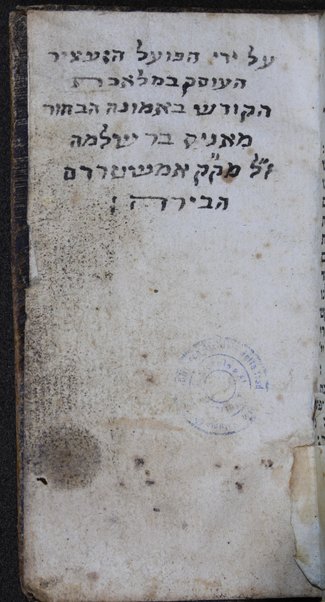 על ידי הפועל הצעיר
העוסק במלאכת
הקודש באמונה הבחור
מאניס בר שלמה
ז״ל מק״ק אמשטרדם
הבירה :